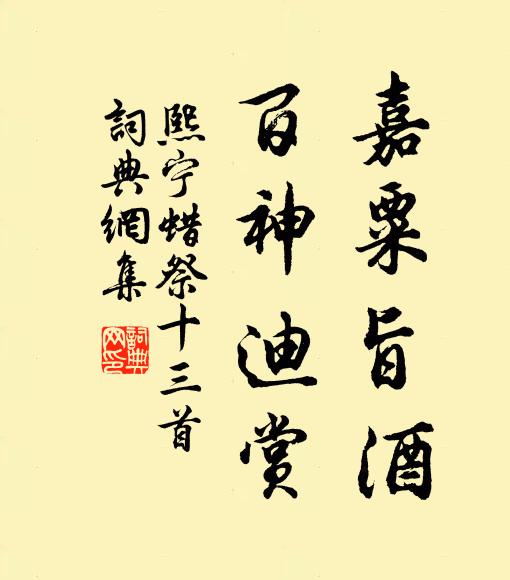 嘉粟旨酒
百神迪賞
熙宁蜡祭十三首
詞典網集
詞典網印